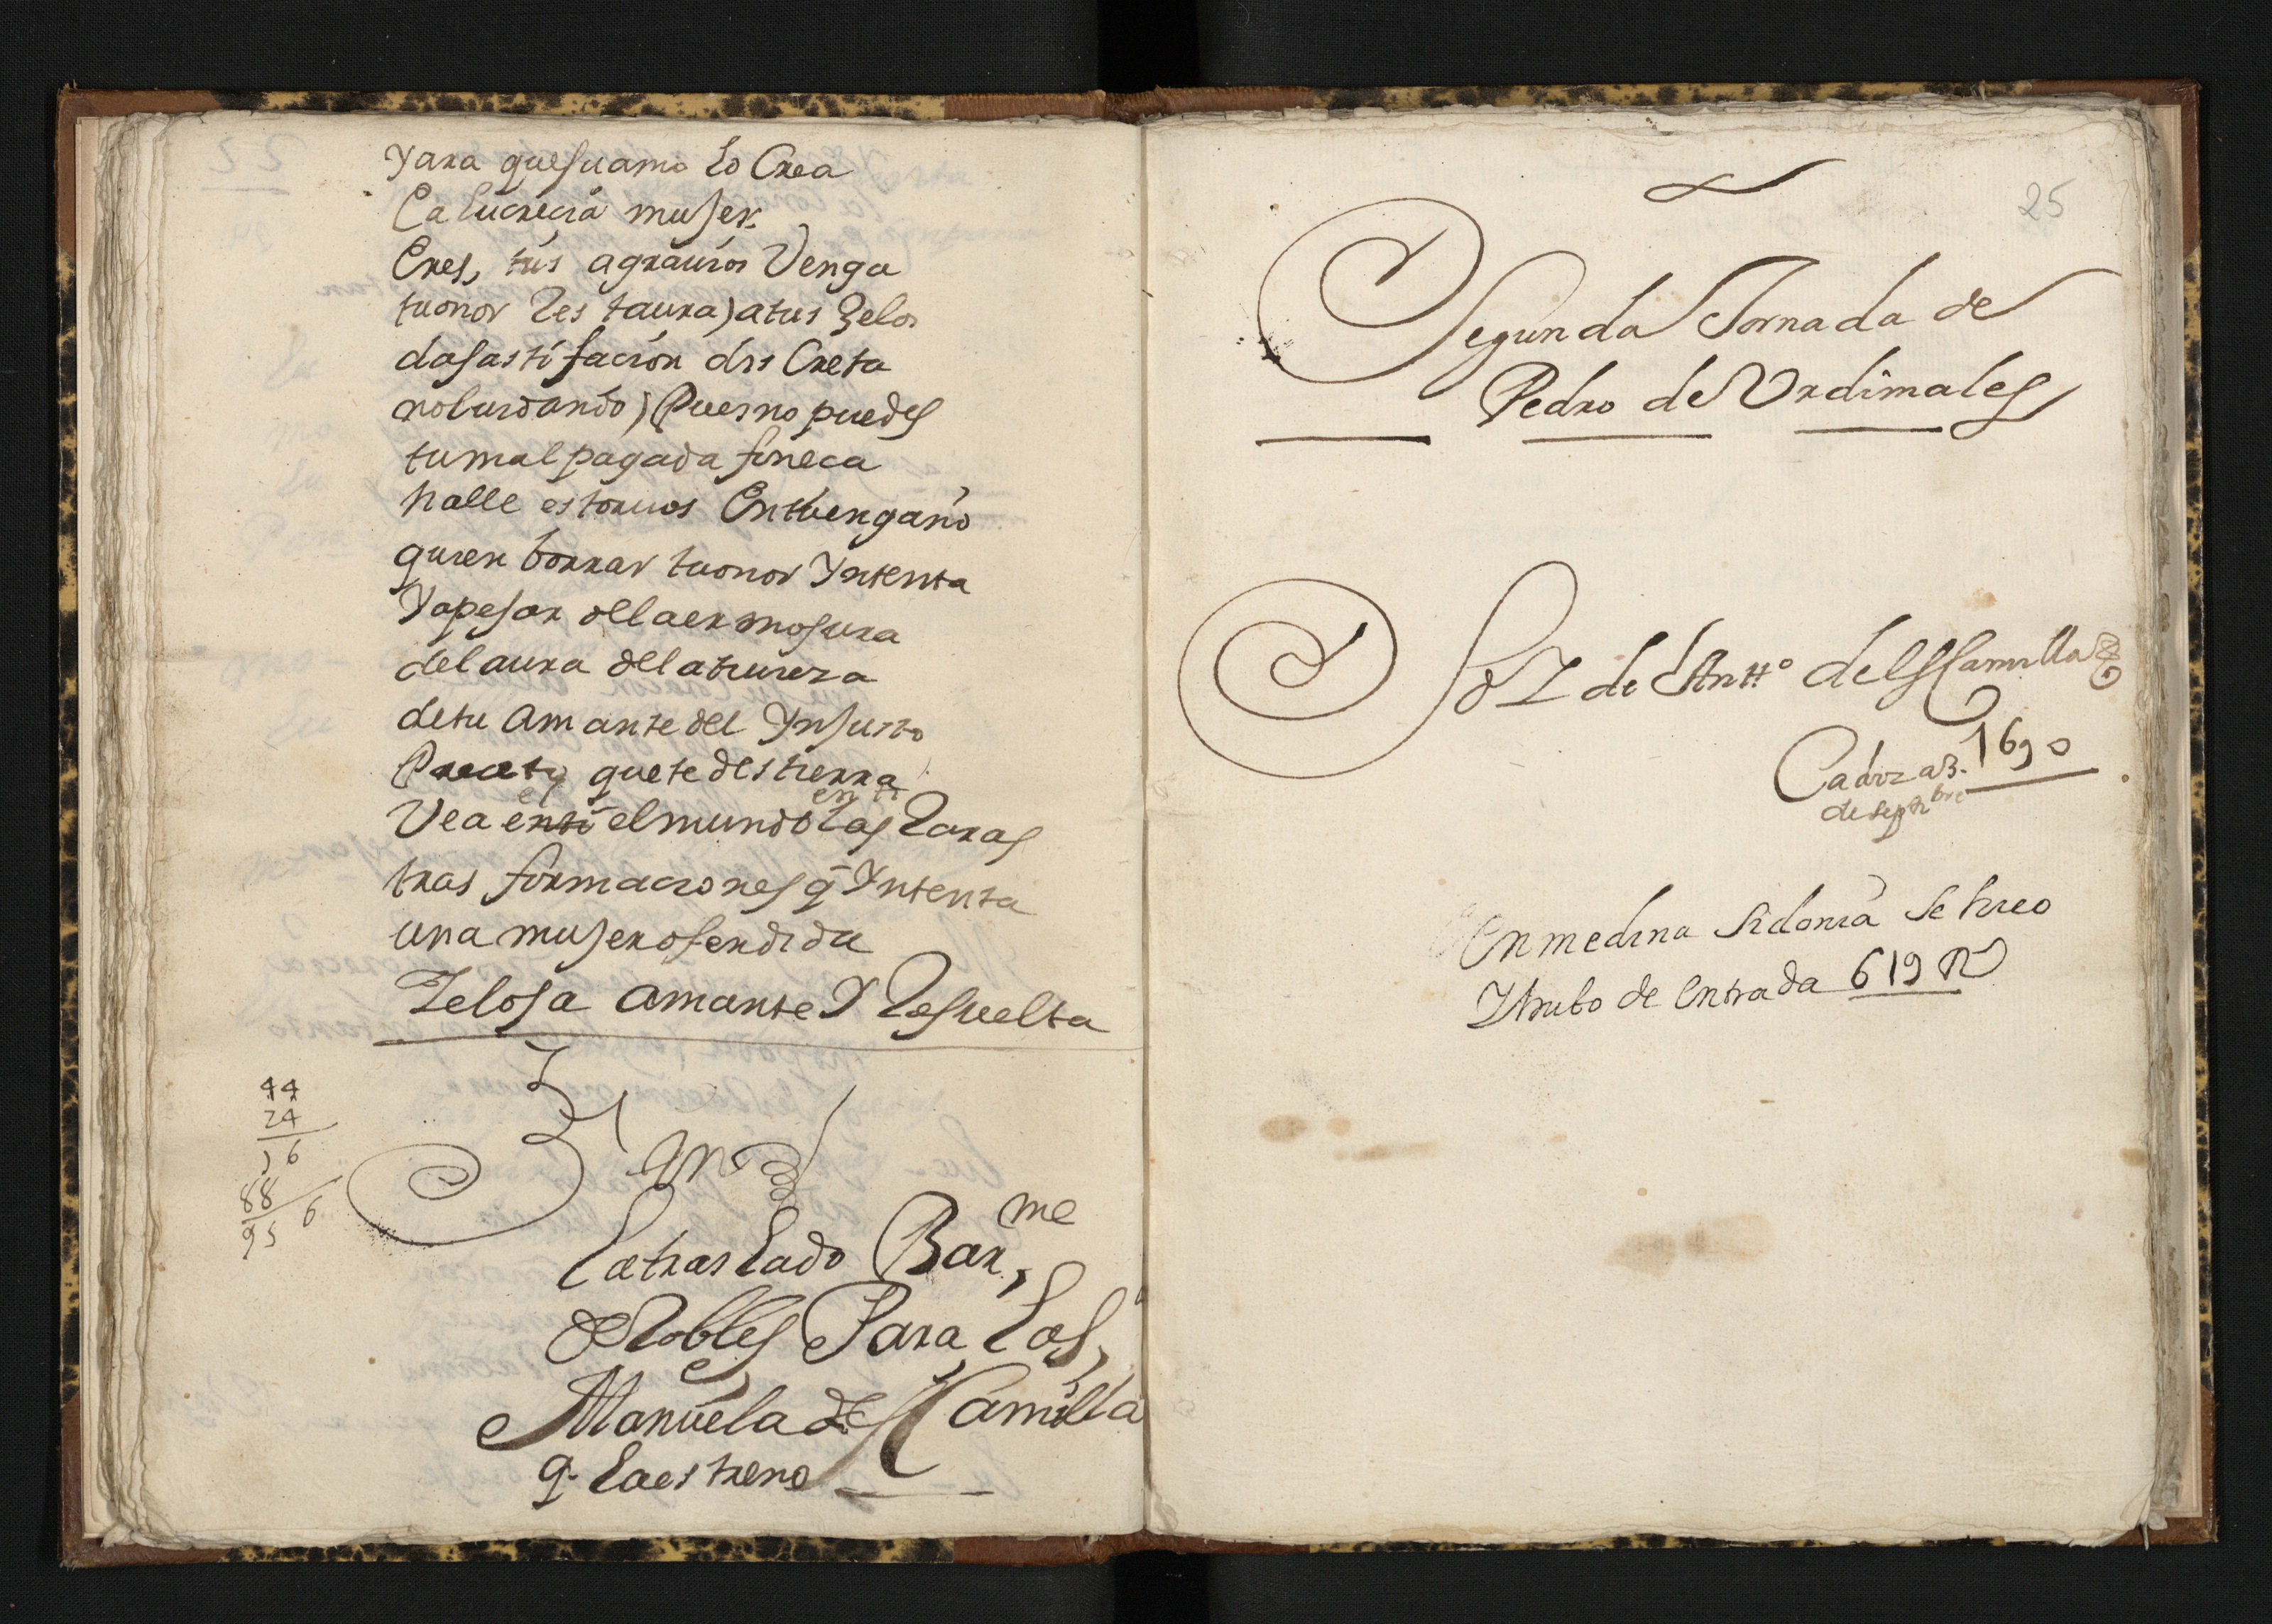 Yara quesuamo lo Crea
La lucrecia muJer.
Eres, tus agrauios Venga
tuonor Restaura) atus Zelos
dasastifacion dis Creta
noluidando) Puesno puedes
tumal pagada fineca
halle estoruos Entuengaño
quien borrar tuonor Yntenta
Yapesar dellaermosura
delaura dellatiuieza
detu Amante del YnJusto
que te destierra
en ti
Vea enti elmundo las Raras
tras formaciones q̄ Yntenta
una muJerofendida
Zelosa amante Y Resuelta
44
24
88
6
95
fin
La traslado Barme
de Robles Para Las,
Manuela de escamilla
q. Laestreno
25
Segunda Jornada de
Pedro de Vrdimales
Soi de Antto de esCamilla
Cadiz a 3. 1690
de septibre
En medina sidonia se hico
Y hubo de entrada 619 R